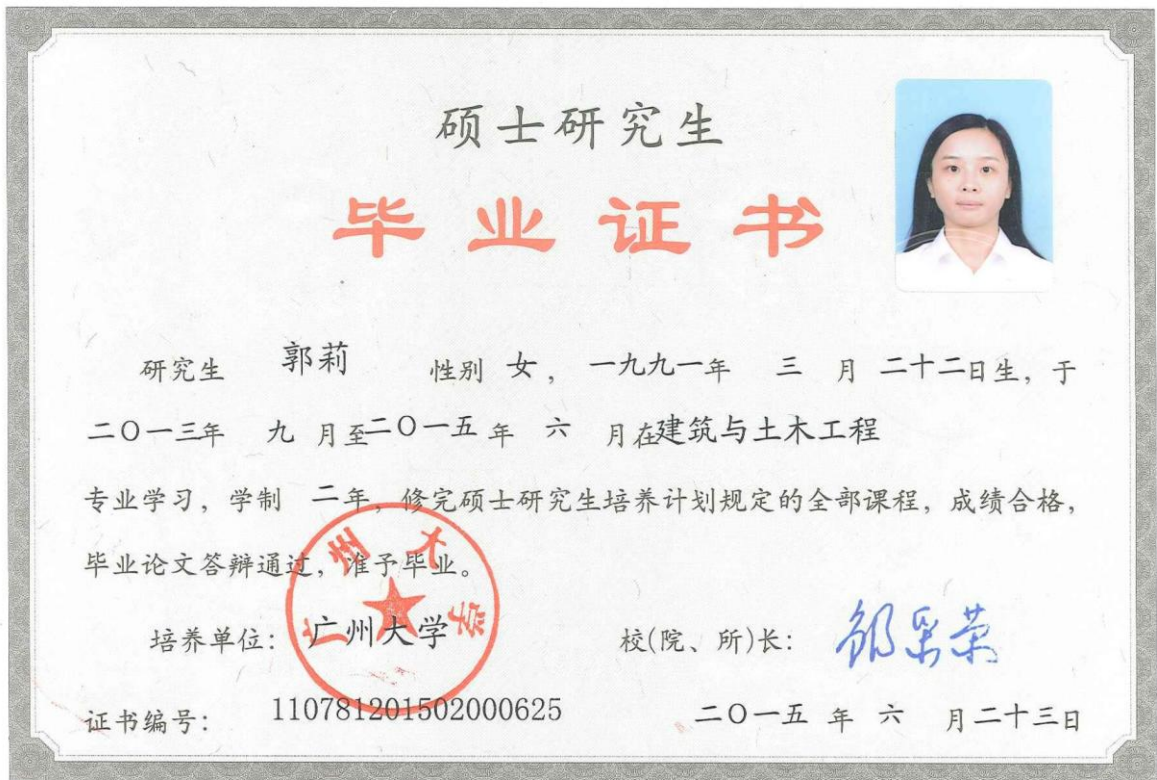 硕士研究生
毕业证书
研究生 郭莉 性别 女, 一九九一年 三 月 二十二日生, 于
二〇一三年 九 月至二〇一五 年 六 月在建筑与土木工程
专业学习, 学制 二年, 修完硕士研究生培养计划规定的全部课程, 成绩合格,
毕业论文答辩通过, 准予毕业。
广州大学
培养单位: 广州大学 校(院、所)长: 邹采荣
证书编号: 110781201502000625 二〇一五 年 六 月二十三日